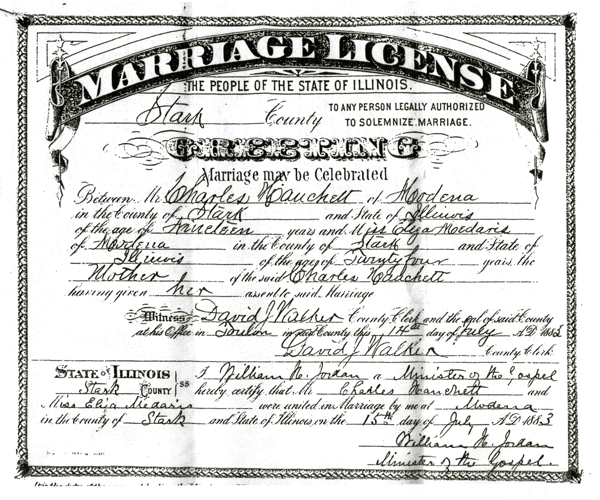 MARRIAGE LICENSE
THE PEOPLE OF THE STATE OF ILLINOIS.
Stark County TO ANY PERSON LEGALLY AUTHORIZED
TO SOLEMNIZE MARRIAGE.
GREETING
Marriage may be Celebrated
Between Mr Charles Hanchett of Modena
in the County of Stark and State of Illinois
of the age of Nineteen years and Miss Medaris
of Modena in the County of Stark and State of
Illinois of the age of Twenty four years the
Mother of the said Charles Hanchett
having given her assent to said Marriage
Witness David J Walker County Clerk and the seal of said County
at his Office in Toulon in said County this 14th day of July A.D. 1883
David J Walker County Clerk
STATE OF ILLINOIS
Stark COUNTY
ss
I William H. Jordan a Minister of the Gospel
hereby certify that Mr Charles Hanchett and
Miss Eliza Medaris were united in Marriage by me at Modena
in the County of Stark and State of Illinois, on the 15th day of July A.D. 1883
William H. Jordan
Minister of the Gospel